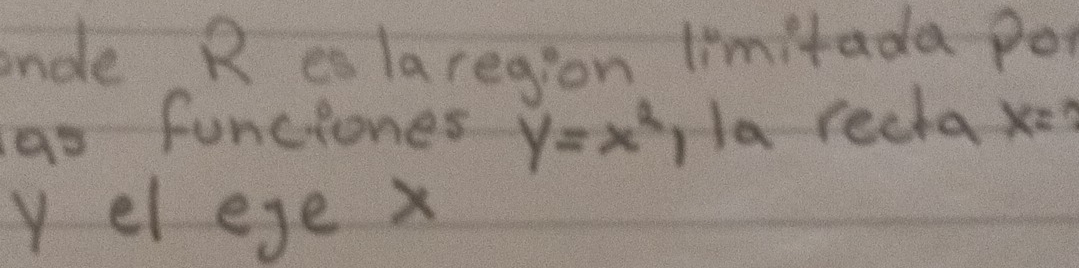 onde R es la region limitada por
las funciones y=x², la recta x=
y el eje x